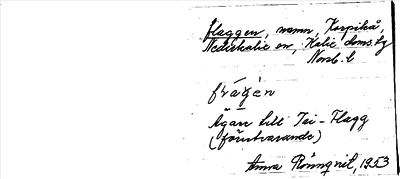 flaggen, namn, Korpikå,
Nederkalix sn, Kalix doms.
Norrb. l
frágèn
Ägare till Tei-Flagg
(förutvarande)
Anna Rönnqvist, 1953